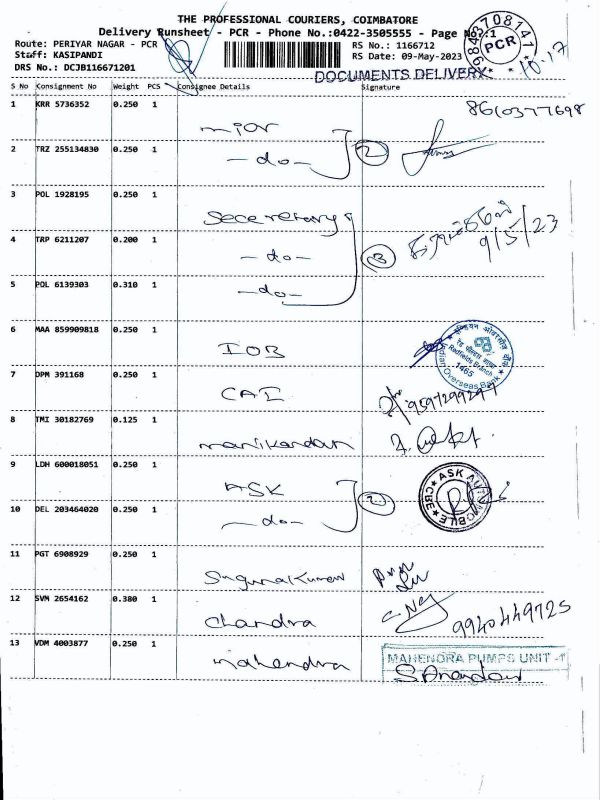 THE PROFESSIONAL COURIERS, COIMBATORE
Delivery Runsheet - PCR - Phone No.:0422-3505555 - Page No.:1
Route: PERIYAR NAGAR - PCR
RS No.: 1166712
Staff: KASIPANDI
RS Date: 09-May-2023
DRS No.: DCJB116671201
DOCUMENTS DELIVERY
9843708141
PCR
10.17
S No Consignment No Weight PCS Consignee Details Signature
8610377698
1 KRR 5736352 0.250 1 mior
2 TRZ 255134830 0.250 1 -do- 2
3 POL 1928195 0.250 1 Seceretary
4 TRP 6211207 0.200 1 -do- 3 9/5/23
5 POL 6139303 0.310 1 -do-
6 MAA 859909818 0.250 1 IOB
इण्डियन ओवरसीज बैंक
Radfields Branch
1465
Indian Overseas Bank
7 DPM 391168 0.250 1 CAI
8 TMI 30182769 0.125 1 manikandan
9 LDH 600018051 0.250 1 ASK
10 DEL 203464020 0.250 1 -do- 2
ASK AUTOMOBILE
CBE
11 PGT 6908929 0.250 1 Sugunakumar
12 SVM 2654162 0.380 1 Chandra 9940449725
13 VDM 4003877 0.250 1 mahendra
MAHENDRA PUMPS UNIT -1